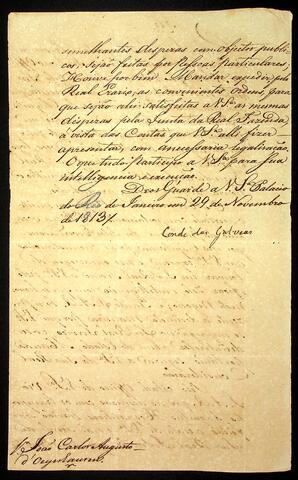 semilhantes despezas com objectos publi-
cos, sejão feitas por Pessoas particulares,
Houve por bem Mandar expedir pelo
Real Erario, as convenientes Ordens, para
que sejão ahi satisfeitas a V.Sa. as mesmas
despezas pela Junta da Real Fazenda,
á vista das Contas que V.Sa. alli fizer
apresentar, com a necessaria legalização.
O que tudo participo a V.Sa. para sua
intelligencia e execução.
Deos Guarde a V.Sa. Palacio
do Rio de Janeiro em 29 de Novembro
de 1813,,
Conde das Galveas
Sr. João Carlos Augusto
d'Oeynhausen.